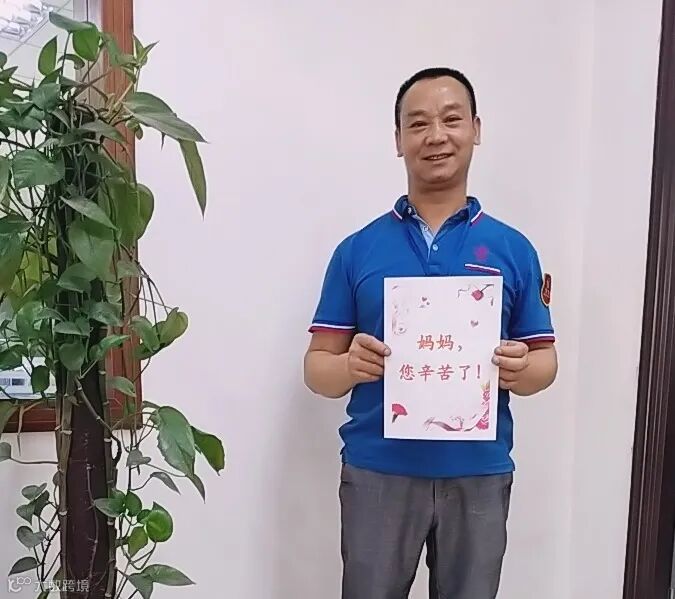 妈妈，
您辛苦了！
大数跨境